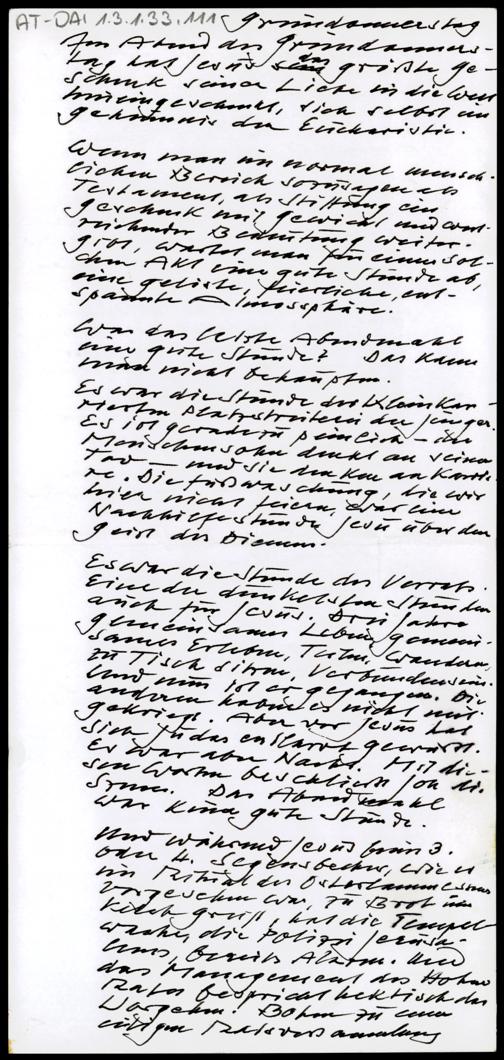 AT-DAI 1.3.1.33.111 Gründonnerstag
Am Abend des Gründonners-
tag hat Jesus das größte Ge-
schenk seiner Liebe in die Welt
hineingeschenkt, sich selbst im
geheimnis der Eucharistie.
Wenn man im normal mensch-
lichen Bereich sozusagen als
Testament, als Stiftung ein
geschenk mit gewicht und weit-
reichender Bedeutung weiter-
gibt, wartet man für einen sol-
chen Akt eine gute Stunde ab,
eine gelöste, feierliche, ent-
spannte Atmosphäre.
War das letzte Abendmahl
eine gute Stunde? Das kann
man nicht behaupten.
Es war die Stunde der kleinkar-
rierten Platzstreiterei der Jünger.
Es ist geradezu peinlich - der
Menschensohn denkt an seinen
Tod - und sie denken an Karrie-
re. Die Fußwaschung, die wir
hier nicht feiern, war eine
Nachhilfestunde Jesu über den
geist des Dienens.
Es war die Stunde des Verrats.
Eine der dunkelsten Stunden
auch für Jesus, Drei Jahre
gemeinsames Leben, gemein-
sames Erleben, Teilen, Wandern,
zu Tisch sitzen, Verbundensein.
Und nun ist er gegangen. Die
anderen haben es nicht mit-
gekriegt. Aber vor Jesus hat
sich Judas entlarvt gewusst.
Es war aber Nacht. Mit die-
sen Worten beschließt Joh die
Szene. Das Abendmahl
war keine gute Stunde.
Und während Jesus beim 3.
oder 4. Segensbecher, wie es
im Ritual des Osterlammessens
vorgesehen war, zu Brot und
Kelch greift, hat die Tempel-
wache, die Polizei Jerusa-
lems, bereits Alarm. Und
das Management des Hohen
Rates bespricht hektisch das
Vorgehen. Boten zu einer
eiligen Ratsversammlung